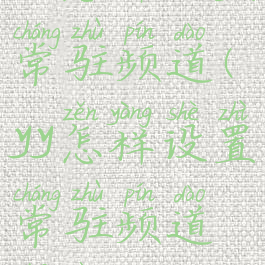 cháng zhù pín dào
常驻频道(
zěn yàng shè zhì
yy怎样设置
cháng zhù pín dào
常驻频道